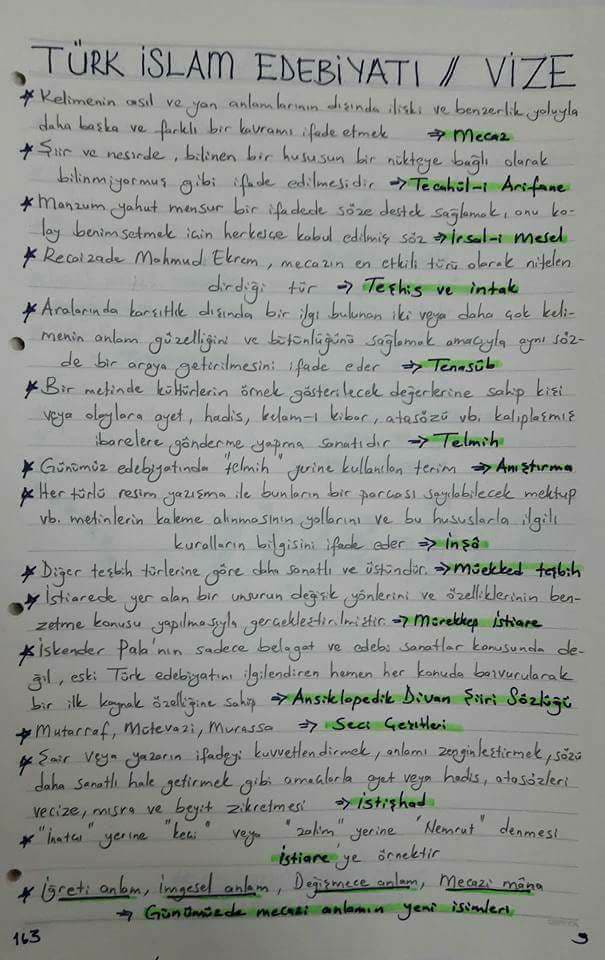 TÜRK İSLAM EDEBİYATI // VİZE
* Kelimenin asıl ve yan anlamlarının dışında ilişki ve benzerlik yoluyla
daha başka ve farklı bir kavramı ifade etmek ⇒ Mecaz
* Şiir ve nesirde, bilinen bir hususun bir nükteye bağlı olarak
bilinmiyormuş gibi ifade edilmesidir ⇒ Tecahül-i Arifane
* Manzum yahut mensur bir ifadede söze destek sağlamak, onu ko-
lay benimsetmek için herkesçe kabul edilmiş söz ⇒ İrsal-i Mesel
* Recaizade Mahmud Ekrem, mecazın en etkili türü olarak nitelen
dirdiği tür ⇒ Teşhis ve intak
* Aralarında karşıtlık dışında bir ilgi bulunan iki veya daha çok keli-
menin anlam güzelliğini ve bütünlüğünü sağlamak amacıyla aynı söz-
de bir araya getirilmesini ifade eder ⇒ Tenasüb
* Bir metinde kültürlerin örnek gösterilecek değerlerine sahip kişi
veya olaylara ayet, hadis, kelam-ı kibar, atasözü vb. kalıplaşmış
ibarelere gönderme yapma sanatıdır ⇒ Telmih
* Günümüz edebiyatında "telmih" yerine kullanılan terim ⇒ Anıştırma
* Her türlü resim yazışma ile bunların bir parçası sayılabilecek mektup
vb. metinlerin kaleme alınmasının yollarını ve bu hususlarla ilgili
kuralların bilgisini ifade eder ⇒ İnşâ
* Diğer teşbih türlerine göre daha sanatlı ve üstündür. ⇒ Müekked teşbih
* İstiarede yer alan bir unsurun değişik yönlerini ve özelliklerinin ben-
zetme konusu yapılmasıyla gerçekleştirilmiştir. ⇒ Mürekkep istiare
* İskender Pala'nın sadece belagat ve edebi sanatlar konusunda de-
ğil, eski Türk edebiyatını ilgilendiren hemen her konuda başvurularak
bir ilk kaynak özelliğine sahip ⇒ Ansiklopedik Divan Şiiri Sözlüğü
* Mutarraf, Mütevazi, Murassa ⇒ Seci Çeşitleri
* Şair veya yazarın ifadeyi kuvvetlendirmek, anlamı zenginleştirmek, sözü
daha sanatlı hale getirmek gibi amaçlarla ayet veya hadis, atasözleri
vecize, mısra ve beyit zikretmesi ⇒ istişhad
* "İnatçı" yerine "keçi" veya "zalim" yerine 'Nemrut' denmesi
İstiare'ye örnektir
* İğreti anlam, İmgesel anlam, Değişmece anlam, Mecazi mâna
⇒ Günümüzde mecazi anlamın yeni isimleri
163
9